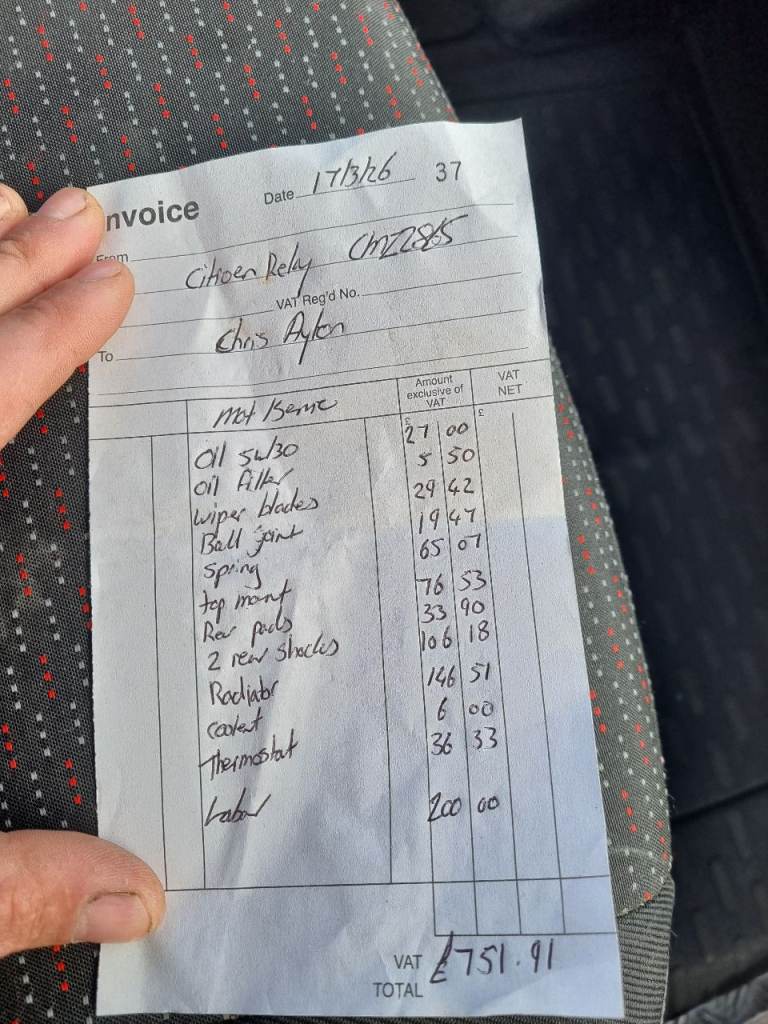 Invoice
Date 17/3/26 37
From
Citroen Relay CMZ2865
VAT Reg'd No.
To Chris Aylon
Amount exclusive of VAT VAT NET
Mot /Service £ £
Oil 5w/30 27 00
oil filter 5 50
wiper blades 29 42
Ball joint 19 47
Spring 65 07
top mount 76 53
Rear pads 33 90
2 rear shocks 106 18
Radiator 146 51
Coolent 6 00
Thermostat 36 33
Labor 200 00
VAT
TOTAL £751.91